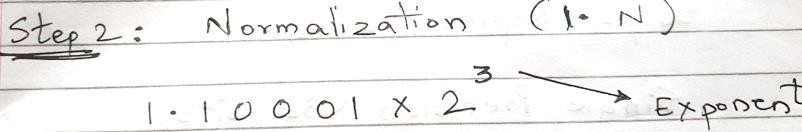 Step 2: Normalization (1. N)
1.10001 × 2³ → Exponent